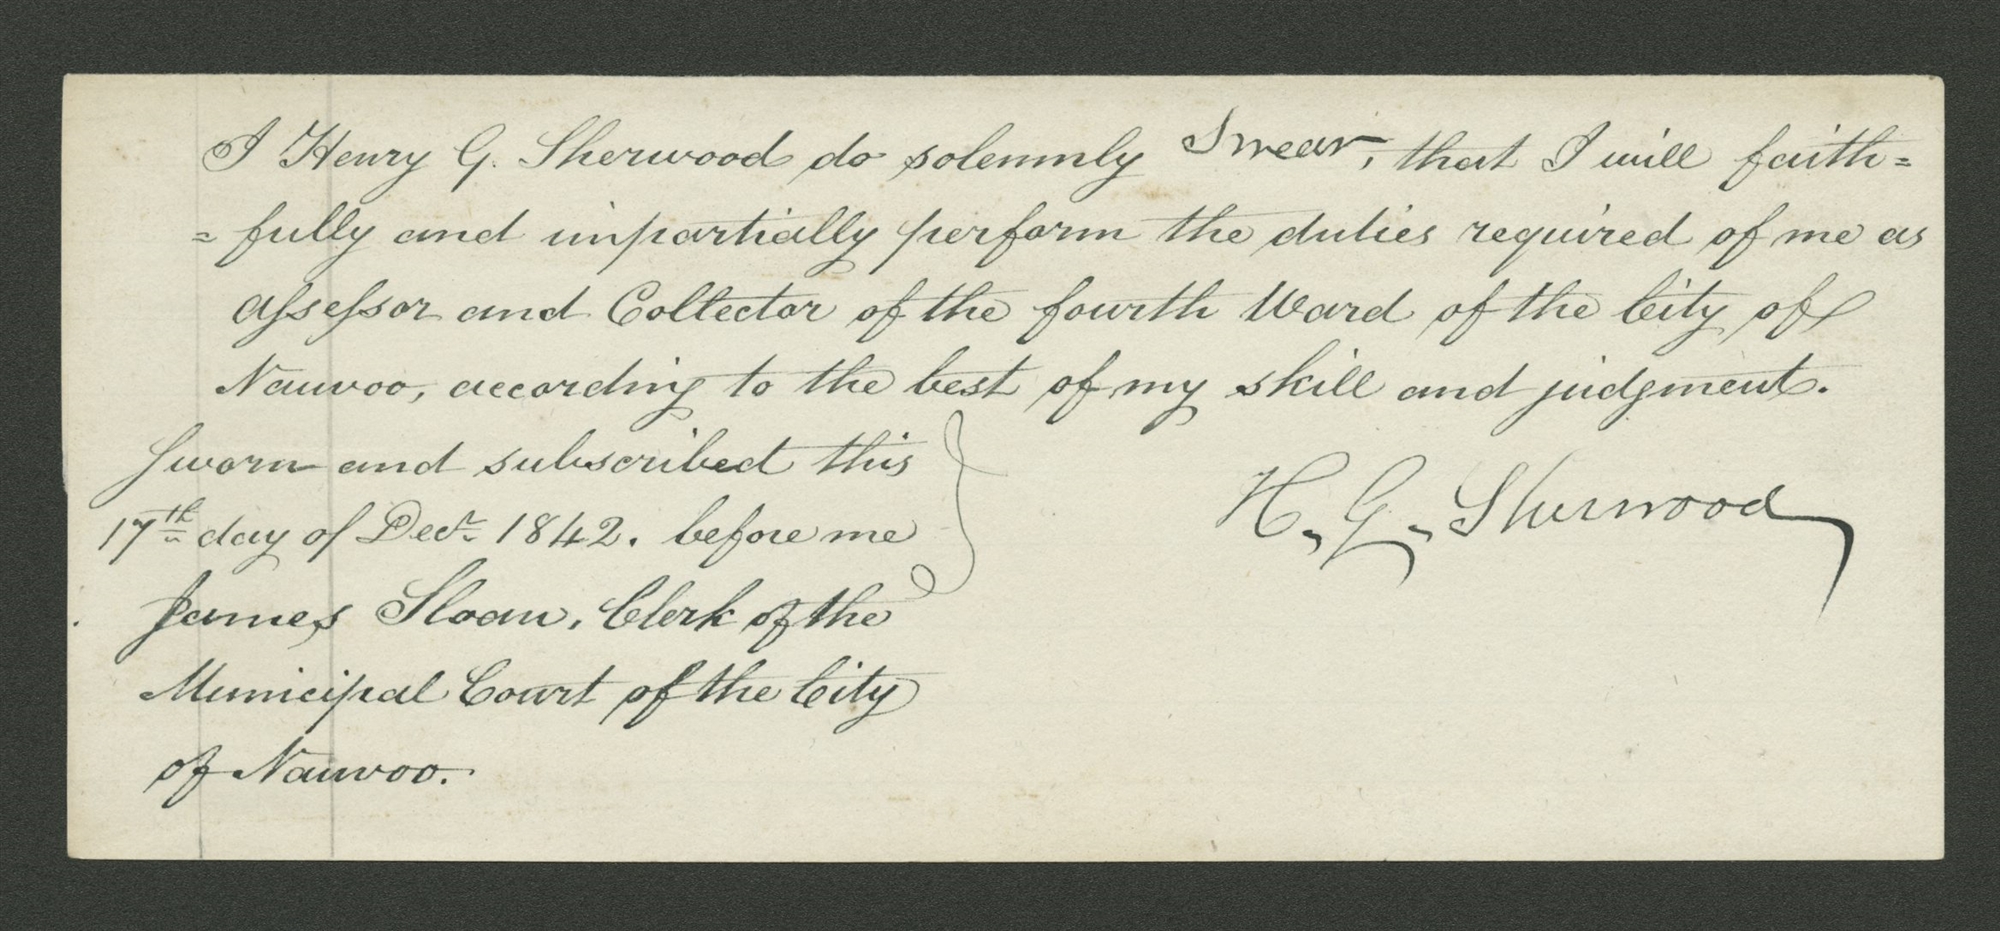 I Henry G. Sherwood do solemnly Swear, that I will faith=
=fully and impartially perform the duties required of me as
assessor and Collector of the fourth Ward of the City of
Nauvoo, according to the best of my skill and judgment.
Sworn and subscribed this
17th day of Decr. 1842. before me
James Sloan, Clerk of the
Municipal Court of the City
of Nauvoo.
H. G. Sherwood